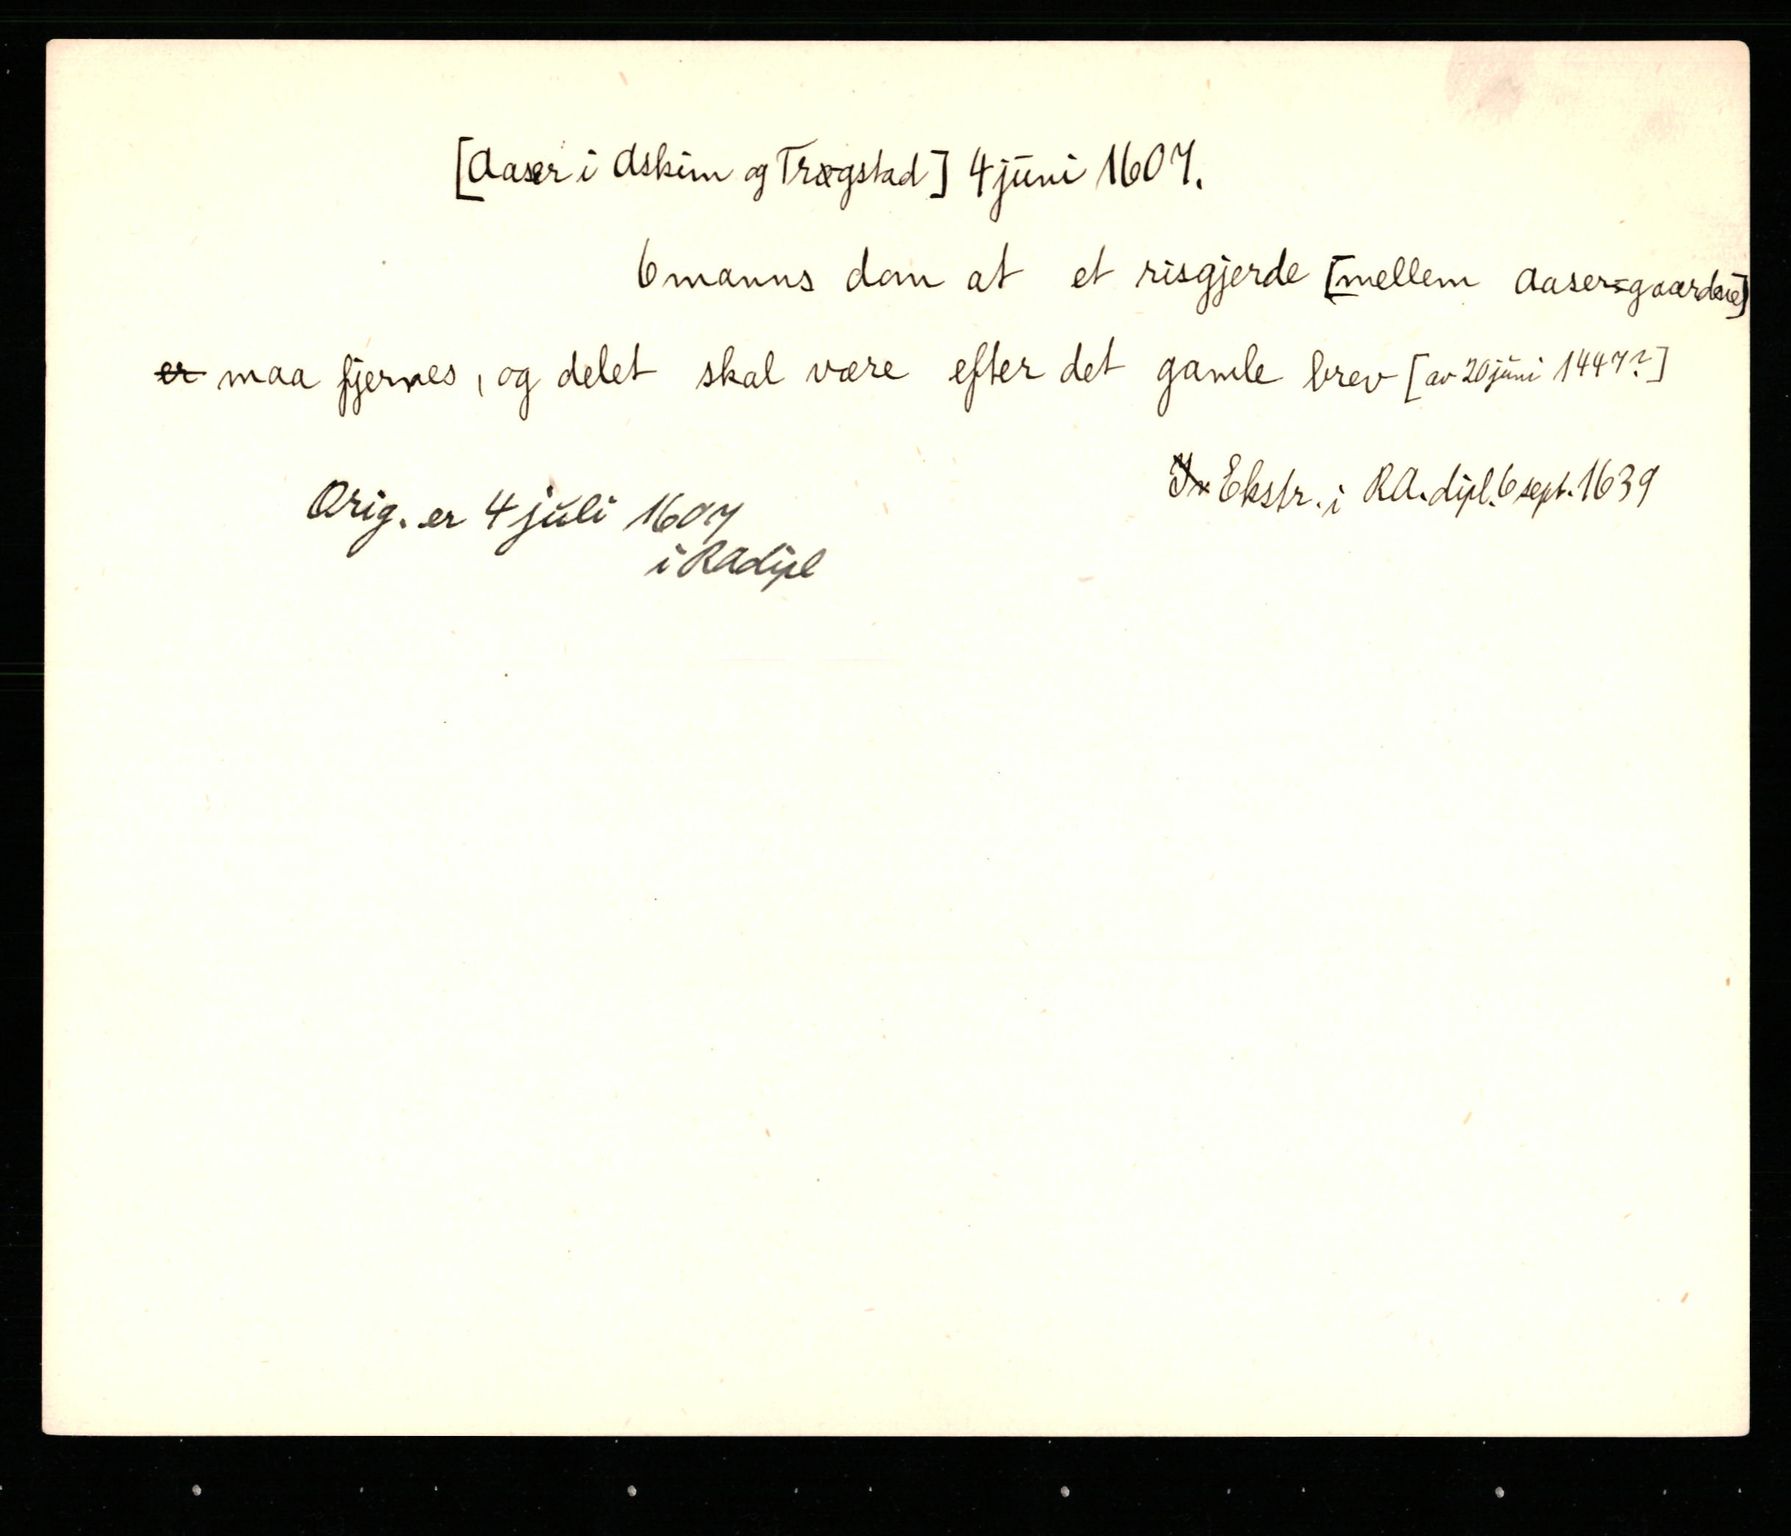 [Aaser i Askim og Trøgstad] 4 juni 1607.
6manns dom at et risgjerde [mellem Aaser=gaardene]
er maa fjernes, og delet skal være efter det gamle brev [av 20 juni 1447?]
Ekstr. i RA. dipl. 6 sept. 1639
Orig. er 4 juli 1607
i RAdipl